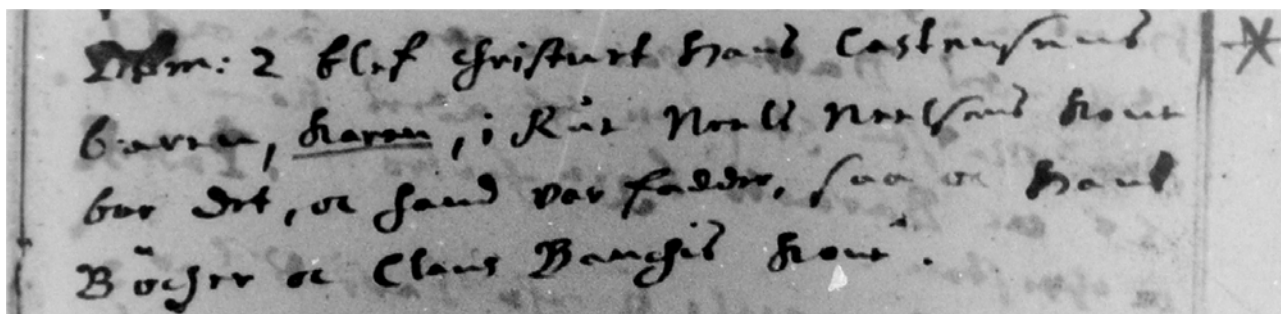 blef Christnet Hans Castensens
baren, Karen, i Kirc Neels Neelsens Kone
bar det, oc hand var fadder, saa oc Hans
Böcher oc Claus Banghis Kone.